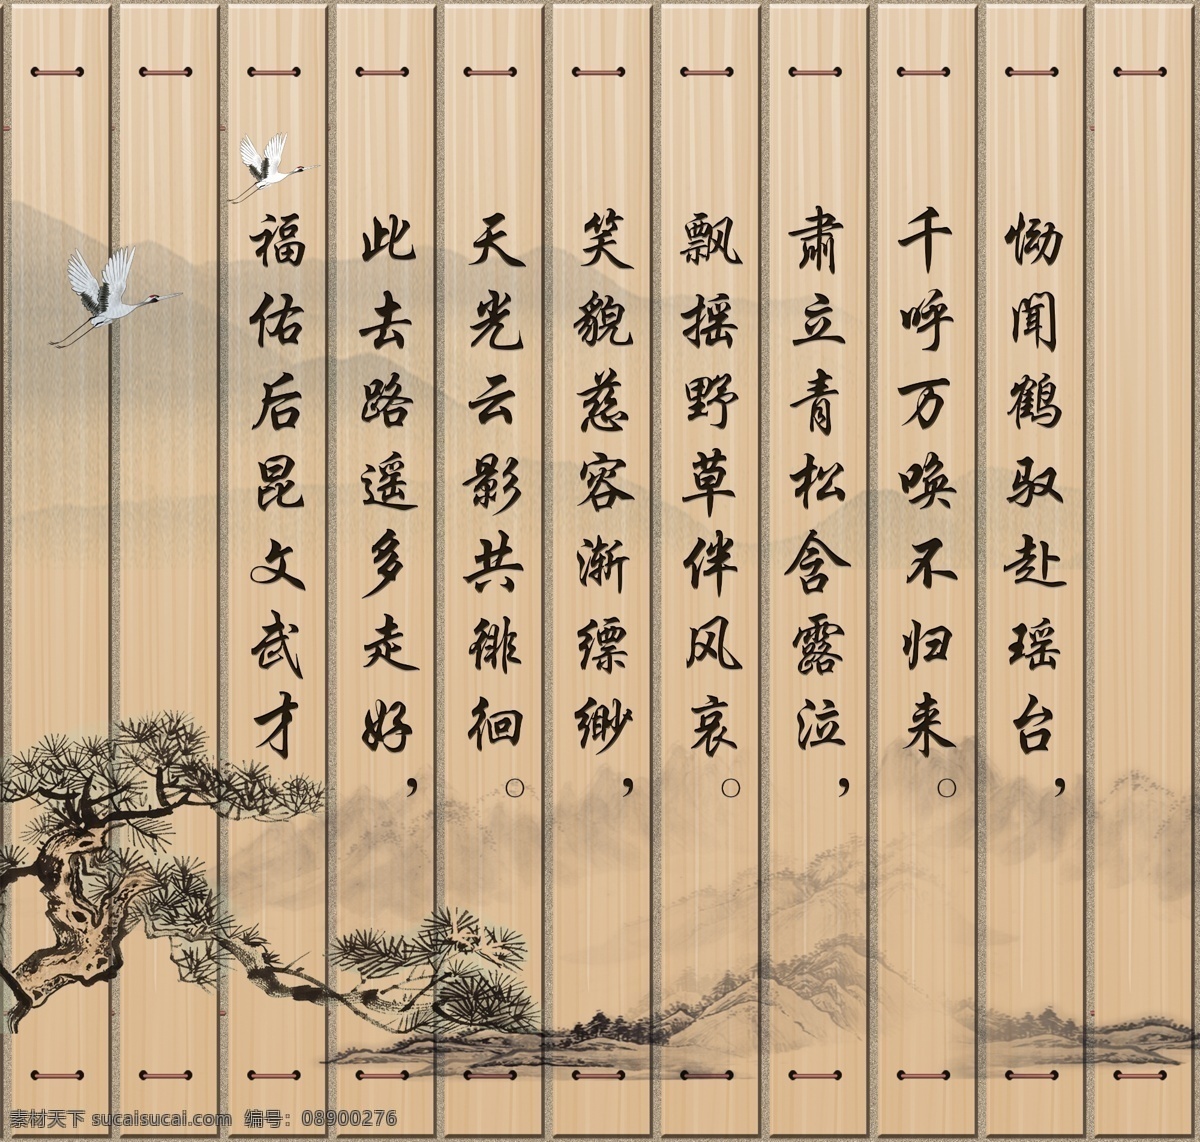 恸闻鹤驭赴瑶台，
千呼万唤不归来。
肃立青松含露泣，
飘摇野草伴风哀。
笑貌慈容渐缥缈，
天光云影共徘徊。
此去路遥多走好，
福佑后昆文武才
素材天下 sucaisucai.com 编号：08900276